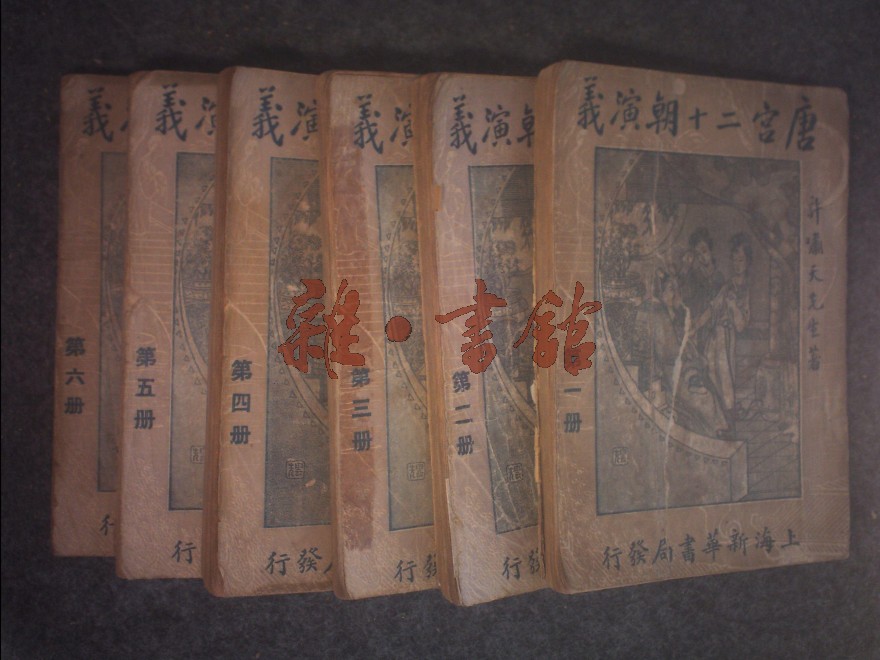 唐宮二十朝演義
許嘯天先生著
一册
上海新華書局發行
朝演義
第二册
發行
演義
第三册
發行
演義
第四册
發行
演義
第五册
行
義
第六册
行
雜·書館